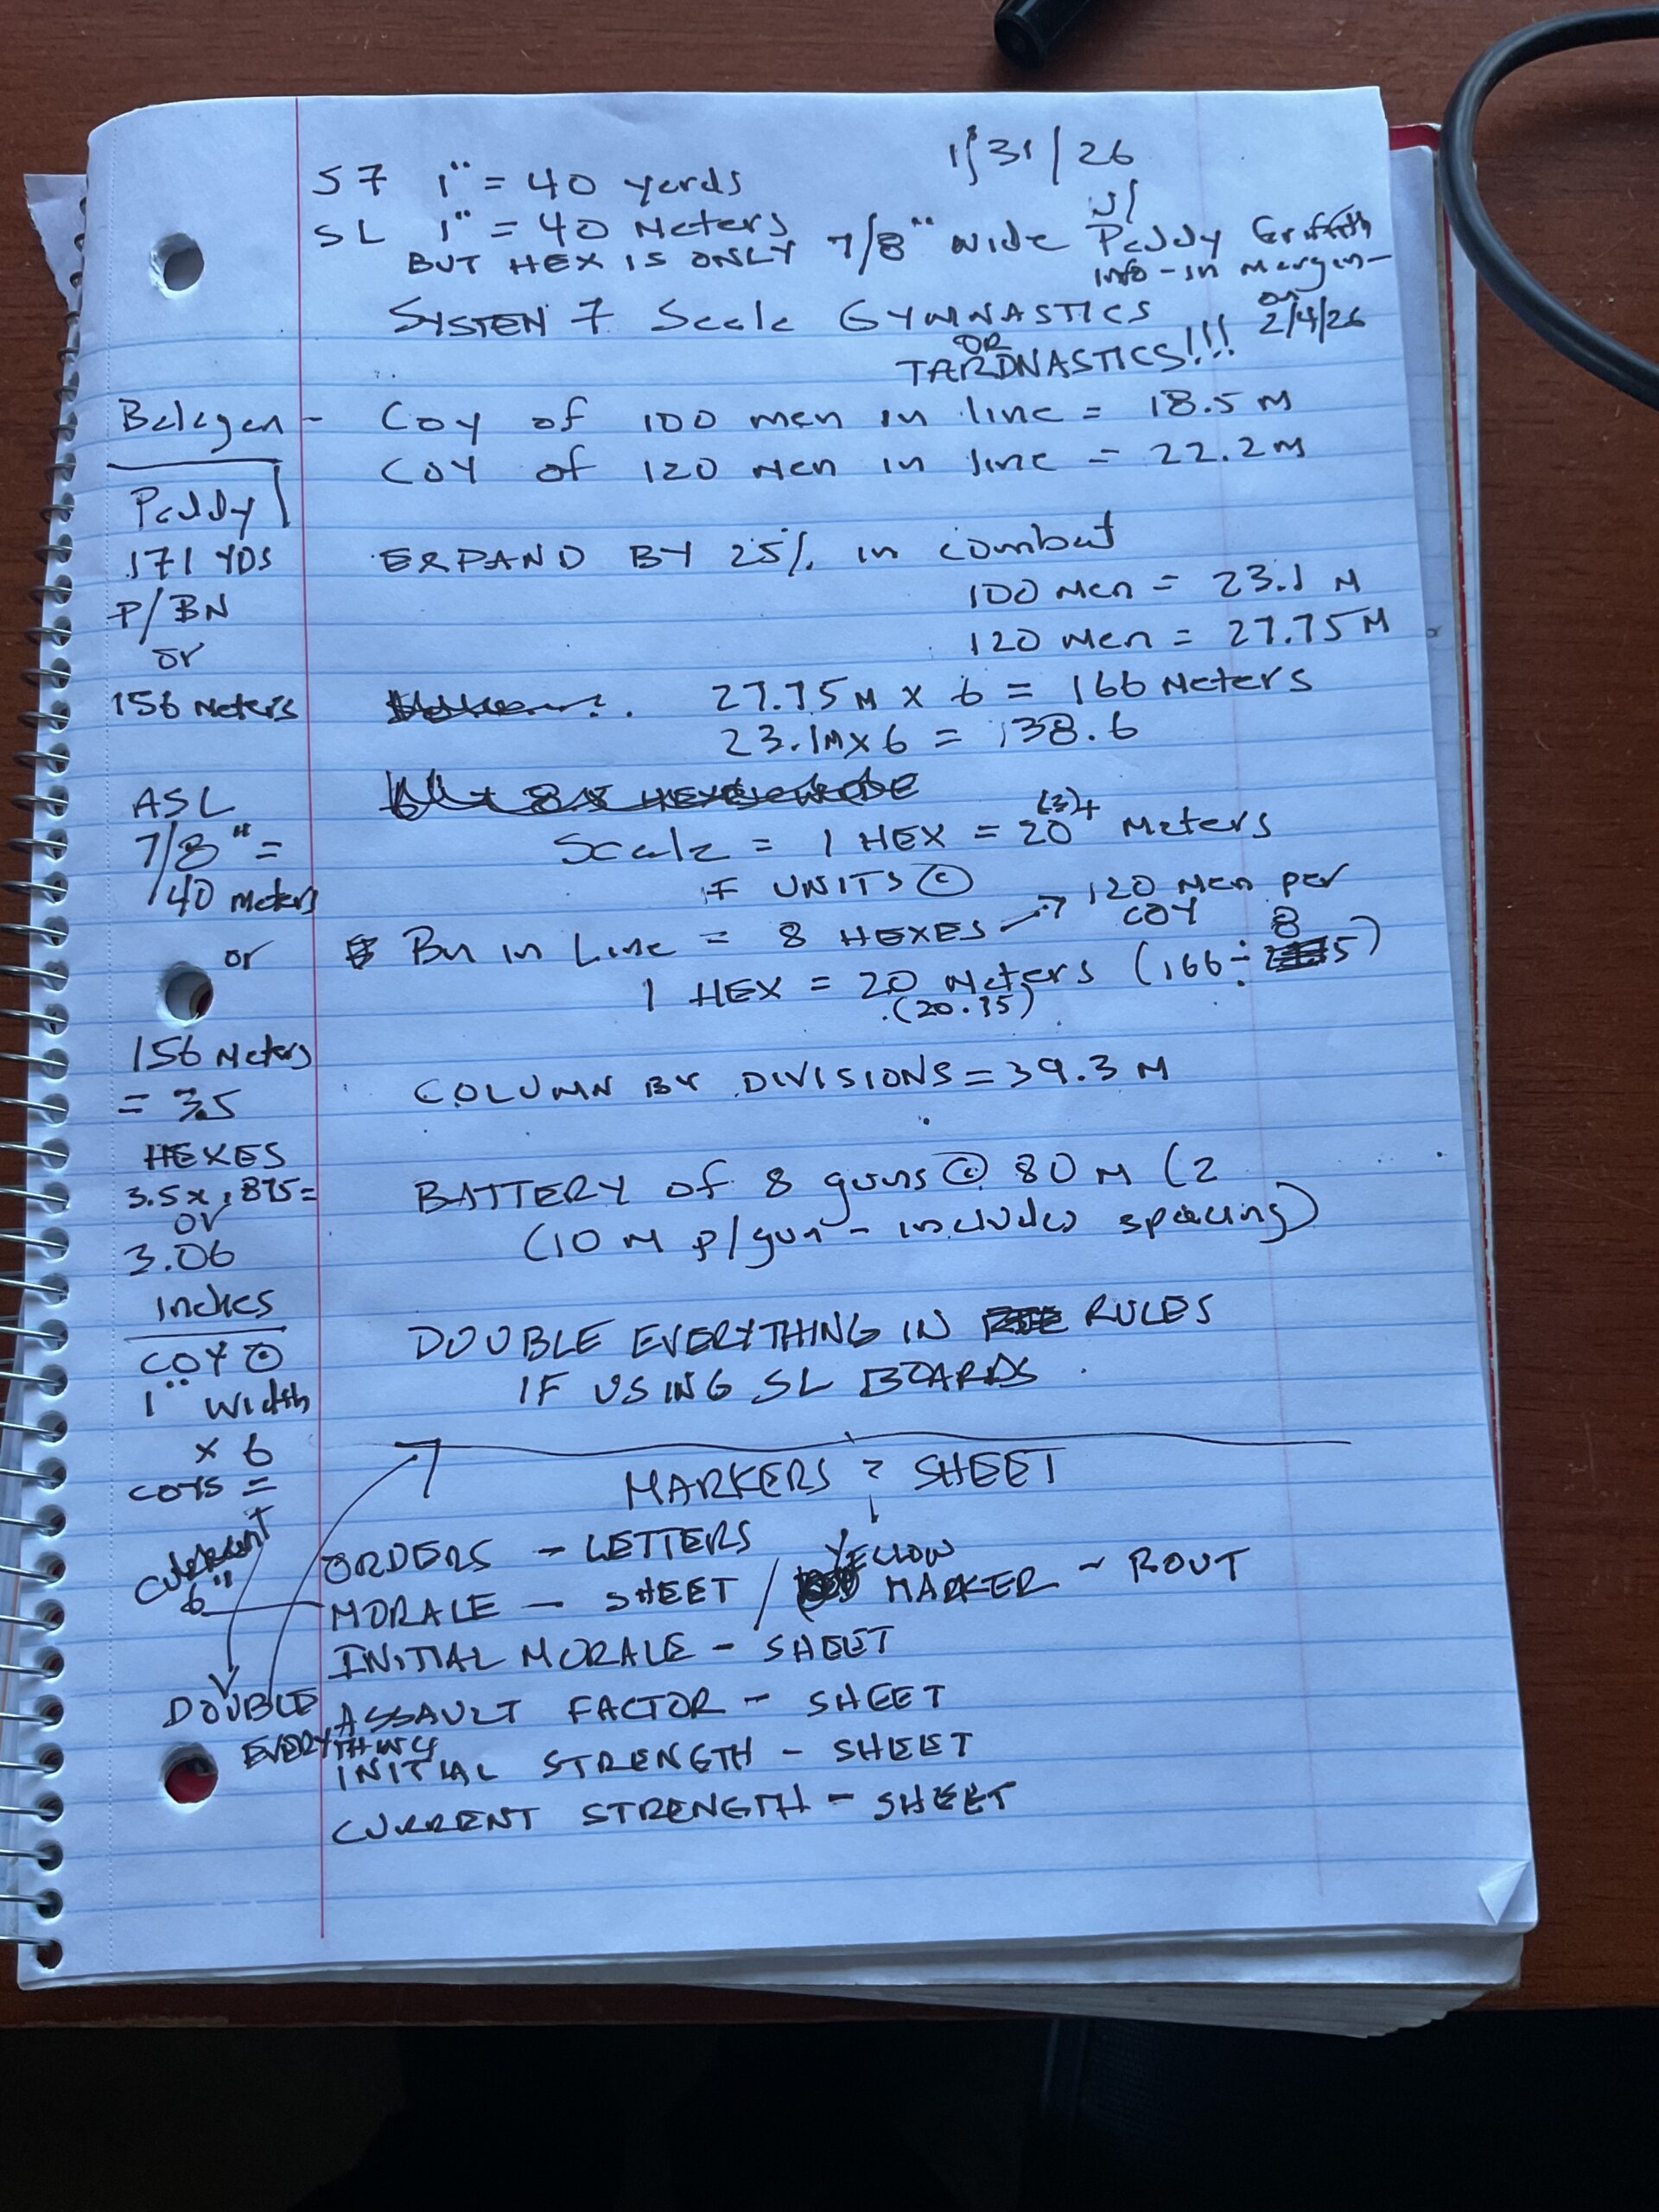 1/31/26
S7 1" = 40 yards
SL 1" = 40 Meters
BUT HEX IS ONLY 7/8" wide
w/
Paddy Griffith
info - in margin -
on
2/4/26
SYSTEM 7 Scale GYMNASTICS
OR
TARDNASTICS!!!
- Coy of 100 men in line = 18.5 M
COY of 120 Men in line = 22.2 M
EXPAND BY 25% in combat
100 Men = 23.1 M
120 Men = 27.75 M
27.75 M x 6 = 166 Meters
23.1M x 6 = 138.6
Scale = 1 HEX = 20+ Meters
UNITS
Bn in Line = 8 HEXES → 120 Men per
COY
1 HEX = 20 Meters (166 ÷ 8)
(20.75)
COLUMN BY DIVISIONS = 39.3 M
BATTERY of 8 guns @ 80 M (2
(10 M p/gun - includes spacing)
DOUBLE EVERYTHING IN RULES
IF USING SL BOARDS
MARKERS ? SHEET
ORDERS - LETTERS
MORALE - SHEET / YELLOW MARKER - ROUT
INITIAL MORALE - SHEET
ASSAULT FACTOR - SHEET
INITIAL STRENGTH - SHEET
CURRENT STRENGTH - SHEET
Paddy
171 YDS
P/BN
or
156 Meters
ASL
7/8" =
40 meters
or
156 Meters
= 3.5
HEXES
3.5 x .875 =
or
3.06
inches
COY @
1" width
x 6
COYS =
6"
DOUBLE
EVERYTHING